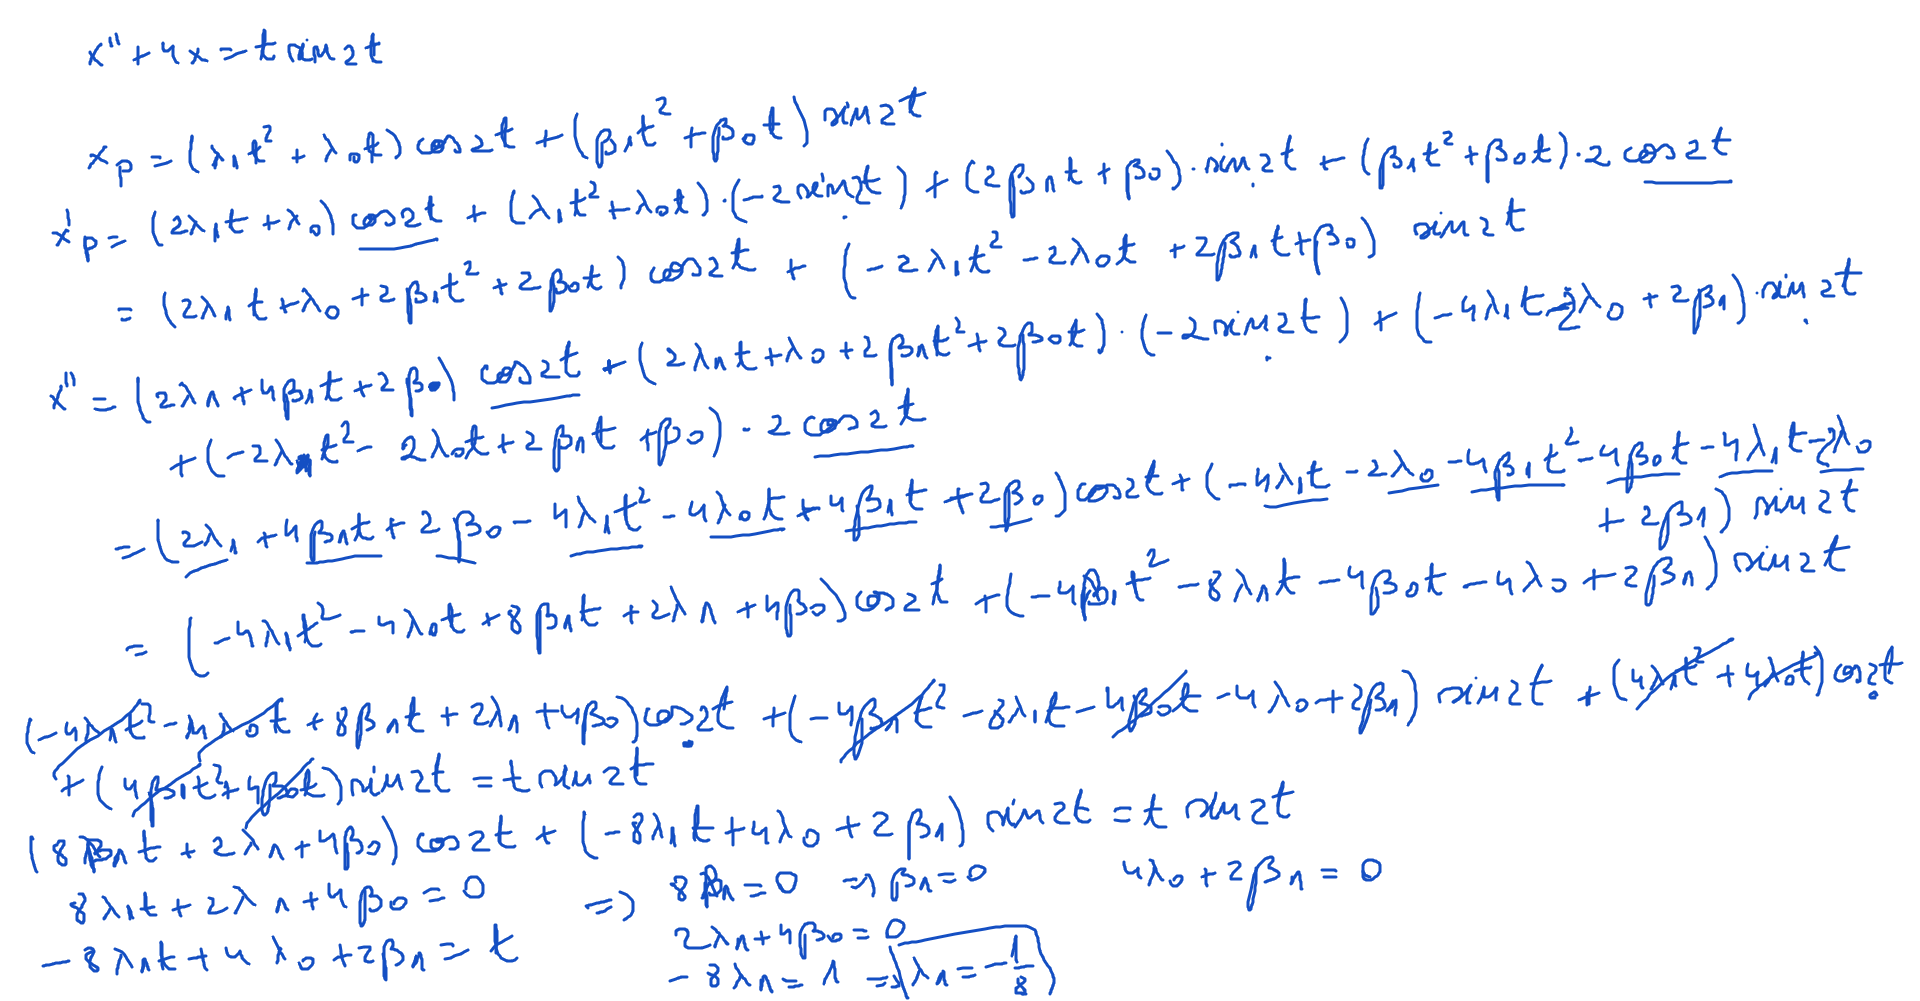 x'' + 4x = t sin 2t
x_p = (λ₁t² + λ₀t) cos 2t + (β₁t² + β₀t) sin 2t
x'_p = (2λ₁t + λ₀) cos 2t + (λ₁t² + λ₀t)·(-2 sin 2t) + (2β₁t + β₀)·sin 2t + (β₁t² + β₀t)·2 cos 2t
= (2λ₁t + λ₀ + 2β₁t² + 2β₀t) cos 2t + (-2λ₁t² - 2λ₀t + 2β₁t + β₀) sin 2t
x'' = (2λ₁ + 4β₁t + 2β₀) cos 2t + (2λ₁t + λ₀ + 2β₁t² + 2β₀t)·(-2 sin 2t) + (-4λ₁t - 2λ₀ + 2β₁)·sin 2t
+ (-2λ₁t² - 2λ₀t + 2β₁t + β₀)·2 cos 2t
= (2λ₁ + 4β₁t + 2β₀ - 4λ₁t² - 4λ₀t + 4β₁t + 2β₀) cos 2t + (-4λ₁t - 2λ₀ - 4β₁t² - 4β₀t - 4λ₁t - 2λ₀
+ 2β₁) sin 2t
= (-4λ₁t² - 4λ₀t + 8β₁t + 2λ₁ + 4β₀) cos 2t + (-4β₁t² - 8λ₁t - 4β₀t - 4λ₀ + 2β₁) sin 2t
(-4λ₁t² - 4λ₀t + 8β₁t + 2λ₁ + 4β₀) cos 2t + (-4β₁t² - 8λ₁t - 4β₀t - 4λ₀ + 2β₁) sin 2t + (4λ₁t² + 4λ₀t) cos 2t
+ (4β₁t² + 4β₀t) sin 2t = t sin 2t
(8β₁t + 2λ₁ + 4β₀) cos 2t + (-8λ₁t + 4λ₀ + 2β₁) sin 2t = t sin 2t
8λ₁t + 2λ₁ + 4β₀ = 0 => 8β₁ = 0 => β₁ = 0 4λ₀ + 2β₁ = 0
-8λ₁t + 4λ₀ + 2β₁ = t 2λ₁ + 4β₀ = 0
-8λ₁ = 1 => λ₁ = -1/8